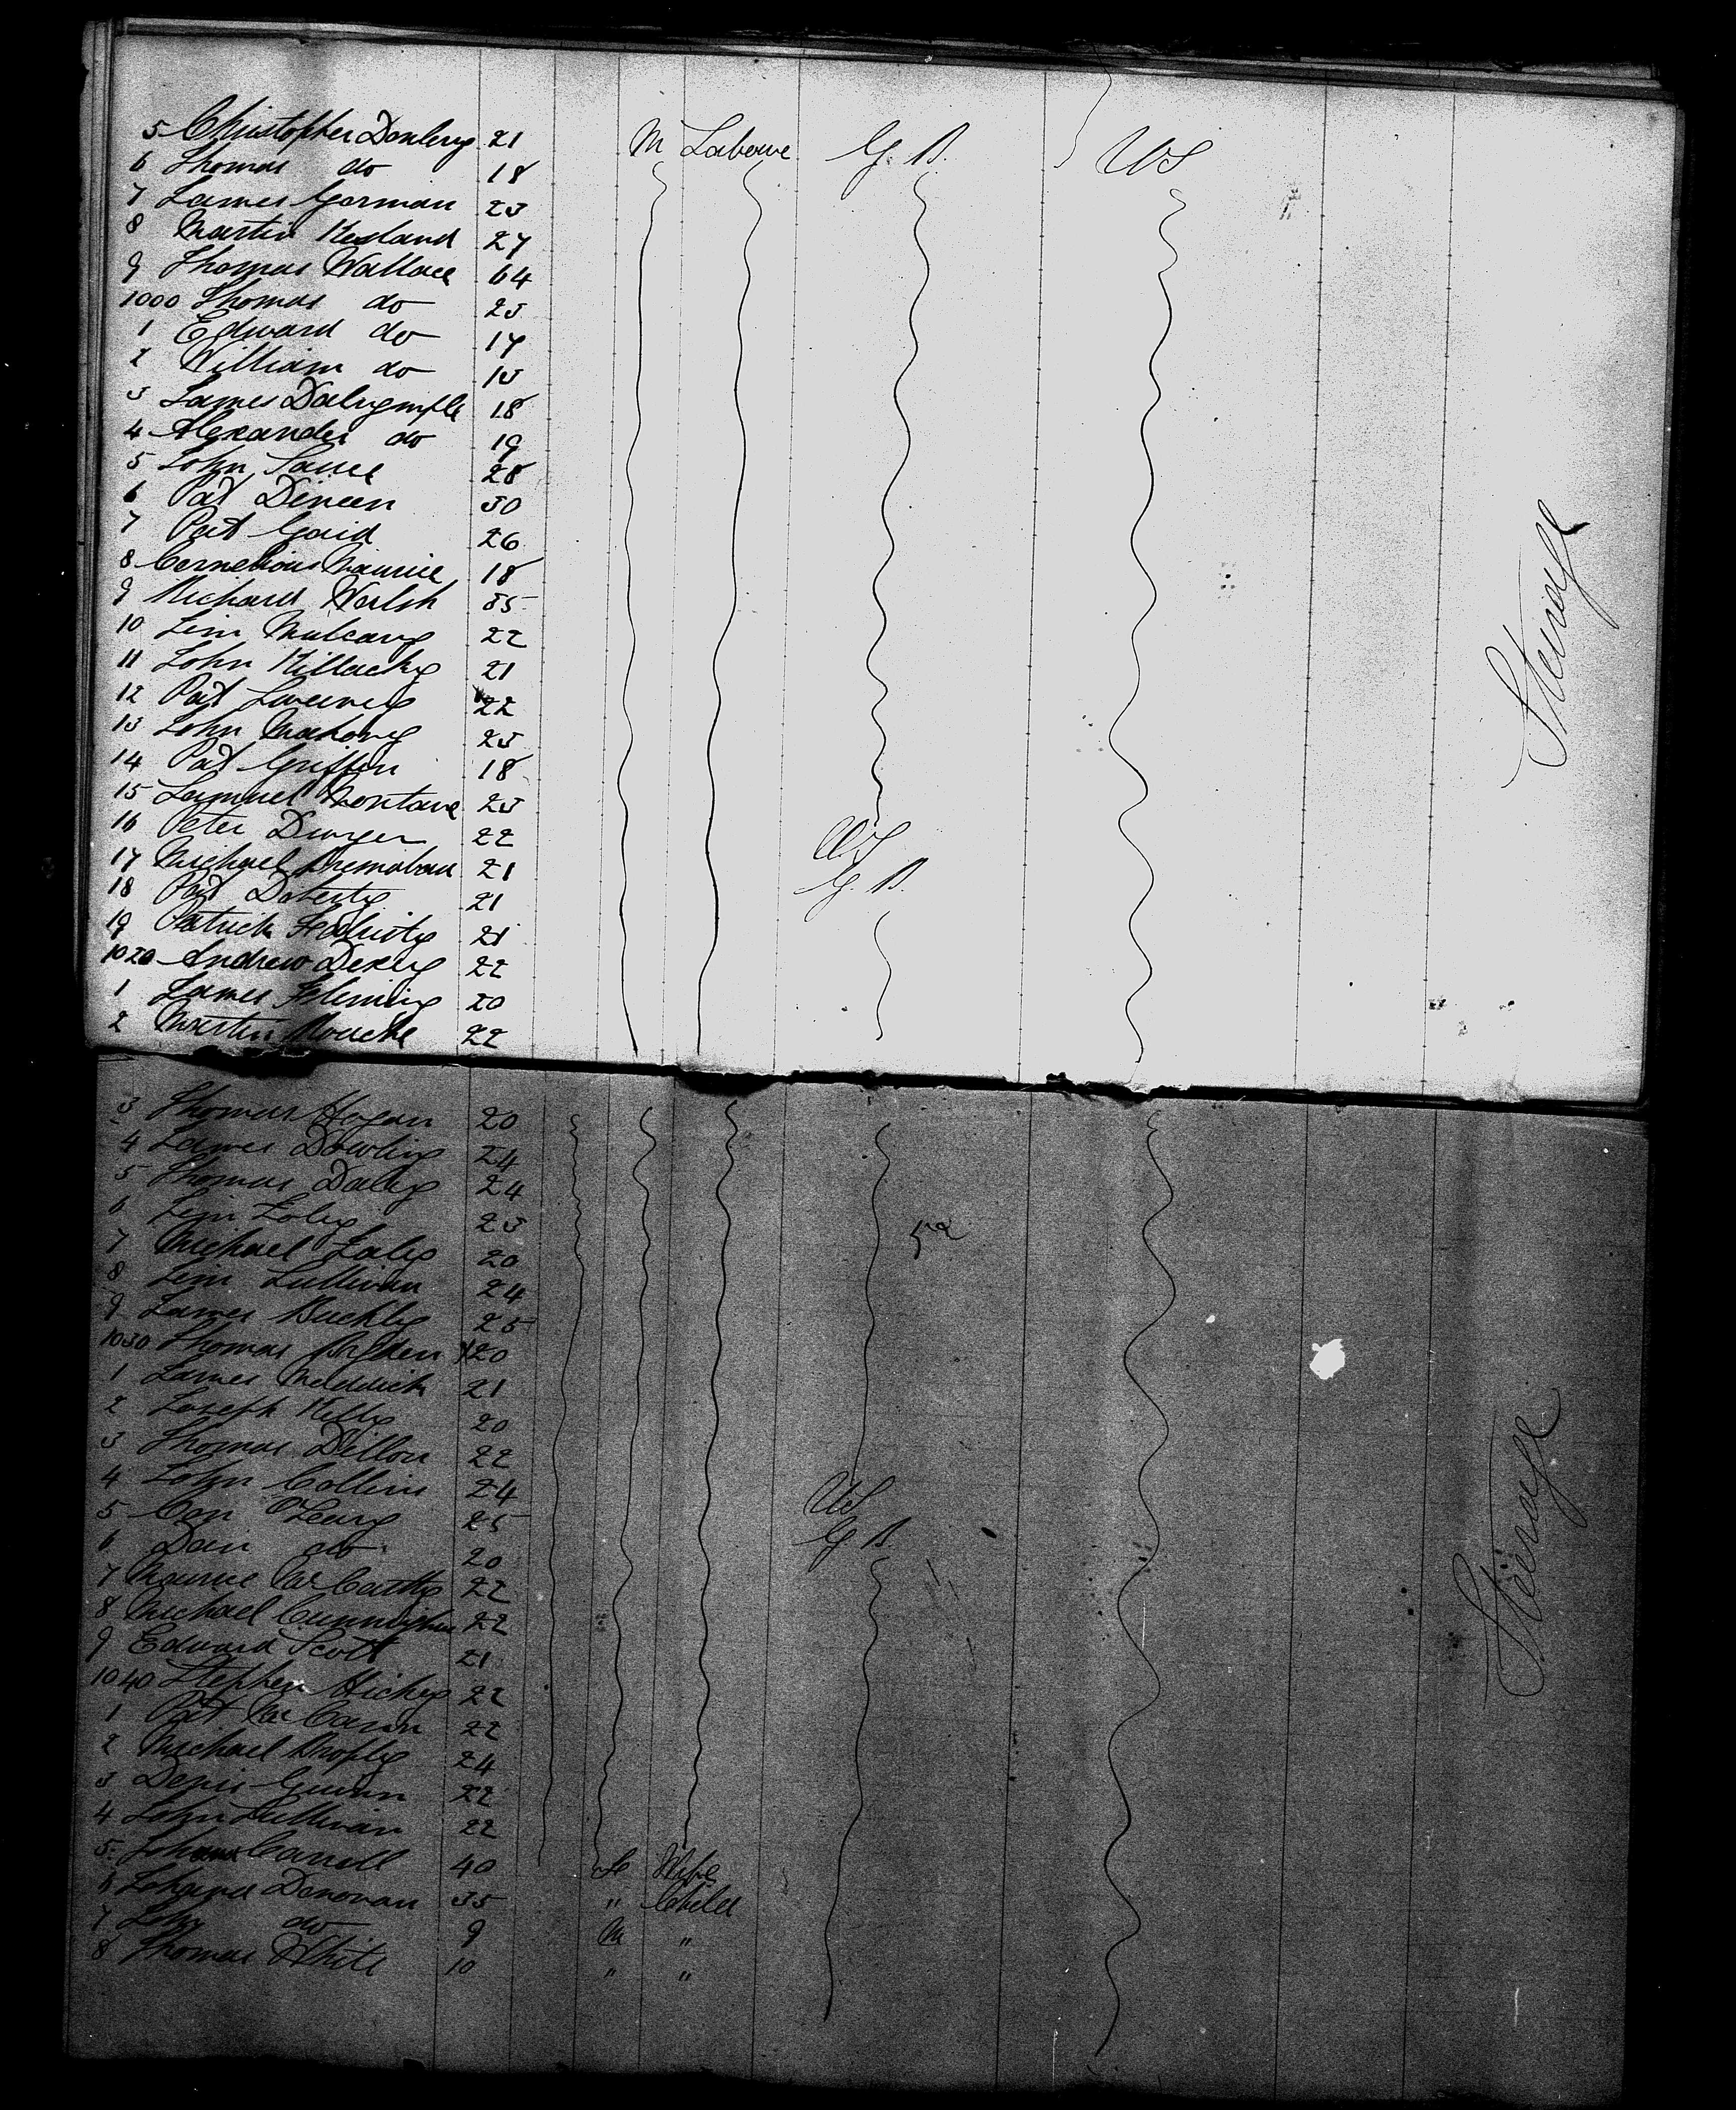 5 Christopher Donlevy 21 M Labourer G. B. US
6 Thomas do 18
7 James Gorman 23
8 Martin 27
9 Thomas Wallace 64
1000 Thomas do 23
1 Edward do 17
2 William do 13
3 James Dalrymple 18
4 Alexander do 19
5 John 28
6 Pat Dineen 30
7 Pat 26
8 Cornelious Maurice 18
9 Richard Walsh 35
10 Jim Mulcany 22
11 John Killacky 21
12 Pat Sweeney 22
13 John Mahony 23
14 Pat Griffin 18
15 Samuel Montane 23
16 Peter Dwyer 22 US
17 Michael 21 G. B.
18 Pat Doherty 21
19 Patrick 21
1020 Andrew 22
1 James Fleming 20
2 Martin Roache 22
Steerage
3 Thomas Hogan 20
4 James Dowling 24
5 Thomas Daly 24
6 Jim Foley 23
7 Michael 20
8 Jim Sullivan 24
9 James Buckley 25
1030 Thomas 20
1 James Meddick 21
2 Joseph Kelly 20
3 Thomas Dillon 22
4 John Collins 24 US
5 Con O'Leary 25 G B.
6 Dan do 20
7 Maurice McCarthy 22
8 Michael Cunningham 22
9 Edward Scott 21
1040 Stephen Hickey 22
1 Pat McCann 22
2 Michael Brophy 24
3 Denis Guinn 22
4 John Sullivan 22
5 Johana Carroll 40 Fe Wife
6 Johana Donovan 35 " Child
7 John do 9 M "
8 Thomas White 10 " "
Steerage